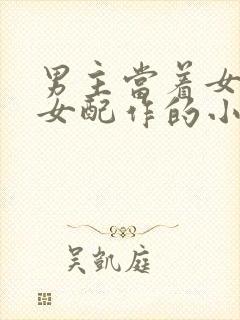 男主當着女
女配作的小
吴凱庭